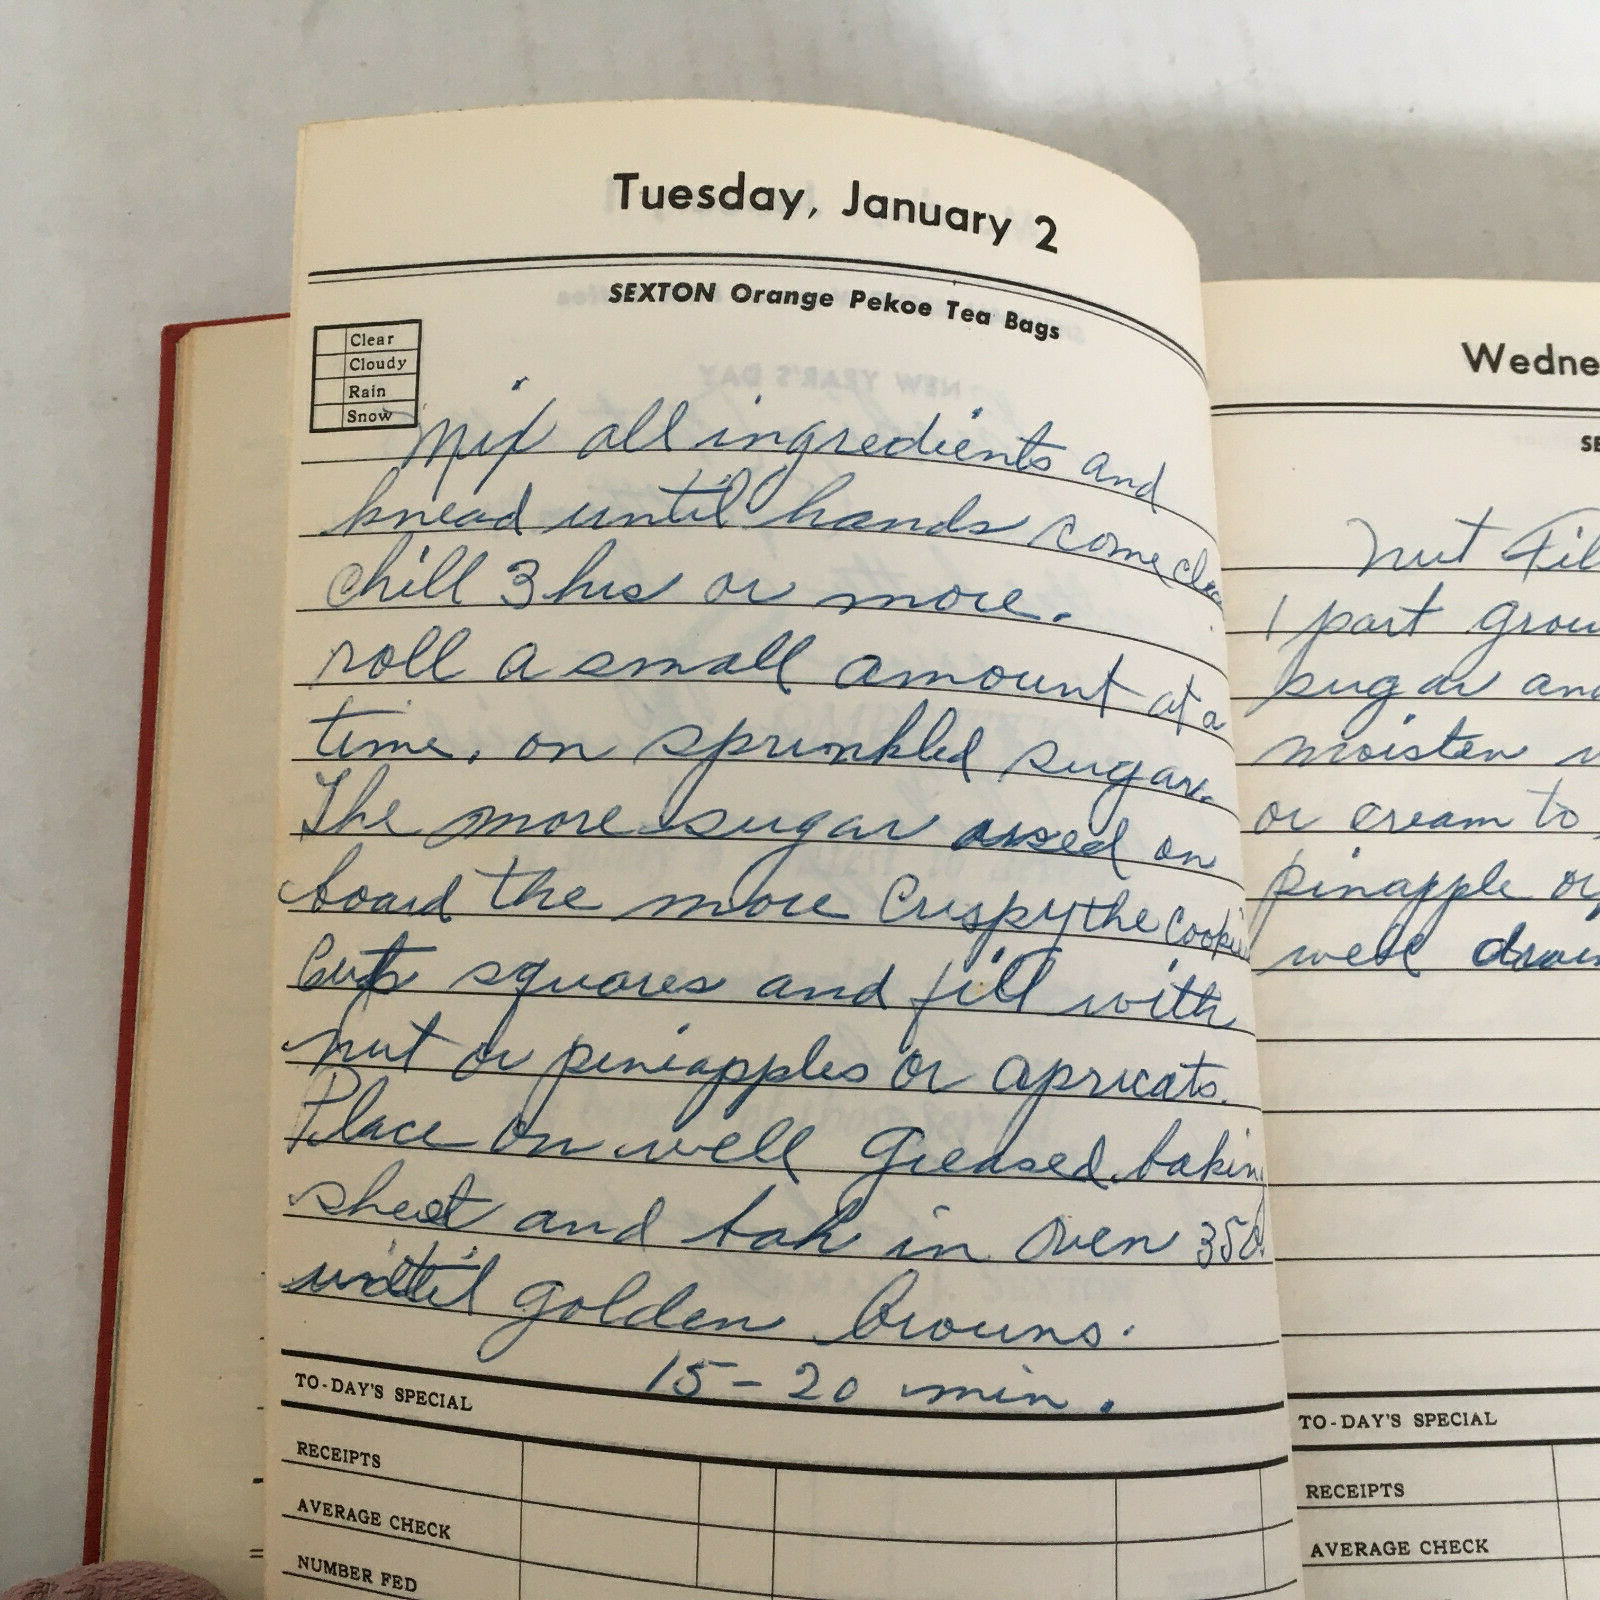 Tuesday, January 2
SEXTON Orange Pekoe Tea Bags
Clear
Cloudy
Rain
Snow
Mix all ingredients and
knead until hands come
chill 3 hrs or more.
roll a small amount at a
time, on sprinkled sugar.
The more sugar used on
board the more Crispy the
Cut squares and fill with
nut or pineapples or apricats.
Place on well Greased baking
sheet and bak in oven 350
until golden browns.
15-20 min.
TO-DAY'S SPECIAL
RECEIPTS
AVERAGE CHECK
NUMBER FED
Wedne
SE
Nut Fil
1 part grou
sugar and
moisten
or cream to
pinapple or
well drain
TO-DAY'S SPECIAL
RECEIPTS
AVERAGE CHECK